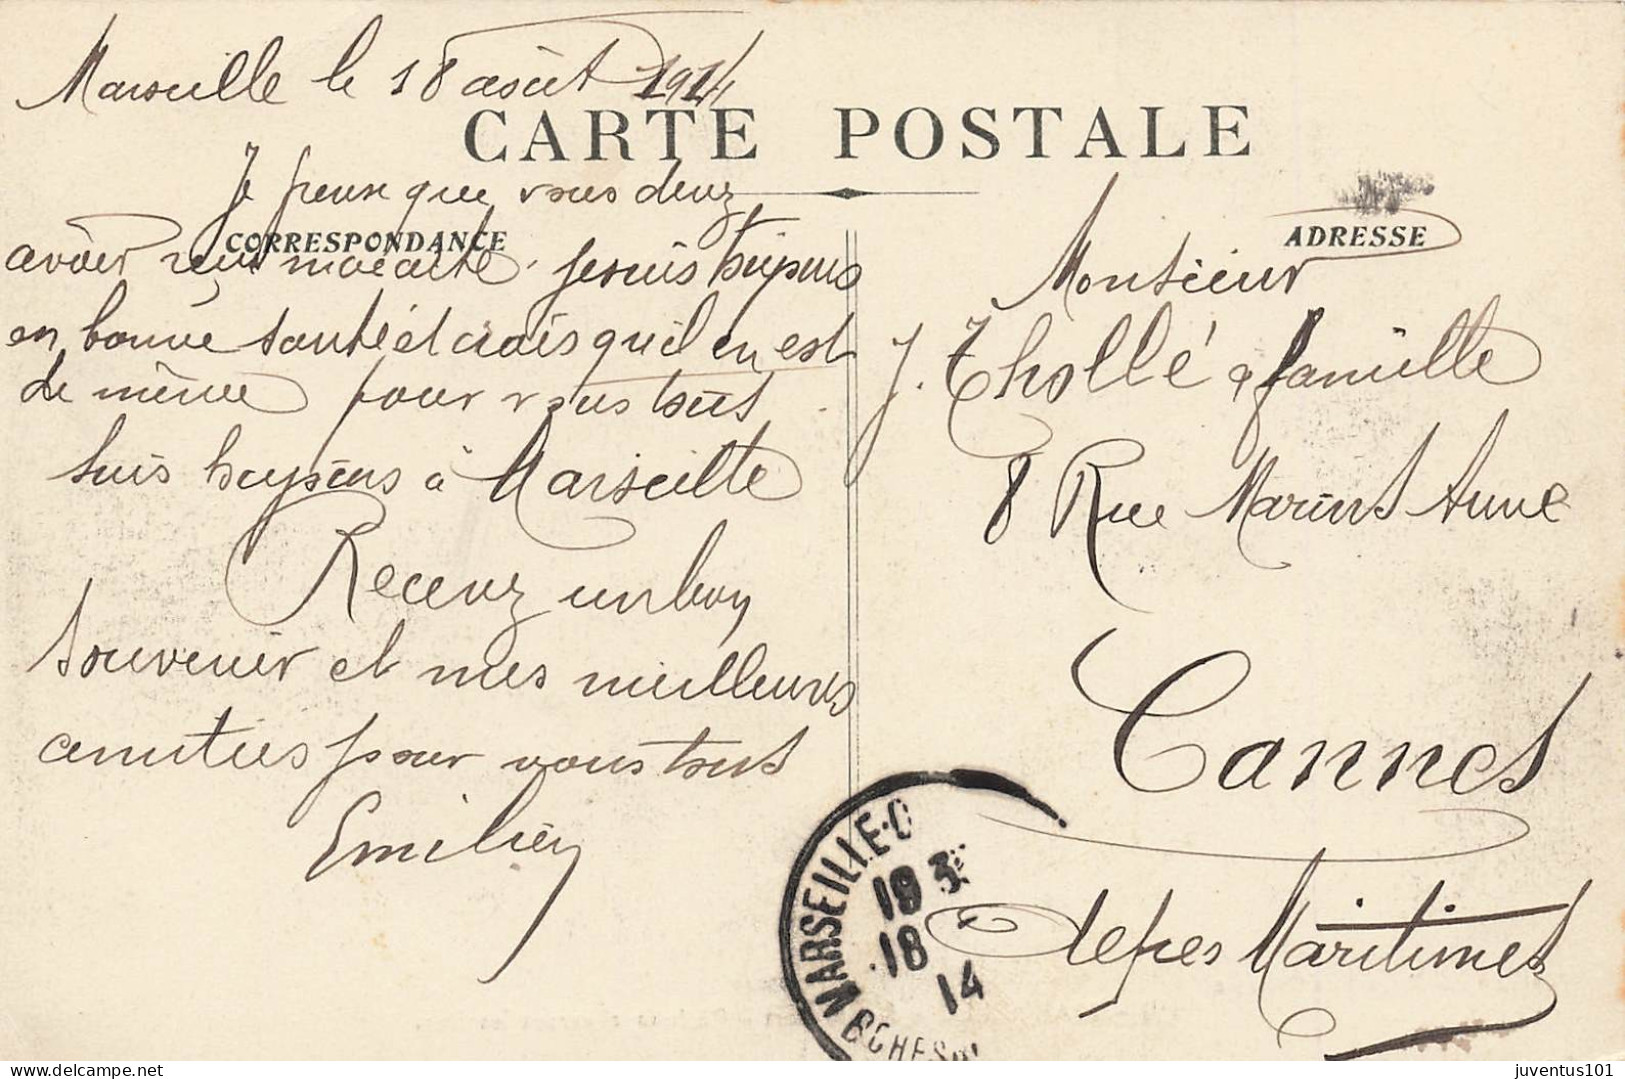 Marseille le 18 août 1914
CARTE POSTALE
Je pense que vous devez
CORRESPONDANCE
avoir reçu ma carte. Je suis toujours
en bonne santé et crois qu'il en est
de même pour vous tous
suis toujours à Marseille
Recevez un bon
souvenir et mes meilleures
amitiés pour vous tous
Emilien
ADRESSE
Monsieur
J. Thollé & famille
8 Rue
Cannes
Alpes Maritimes
MARSEILLE
18 3
18
14
BCHES DU
juventus101